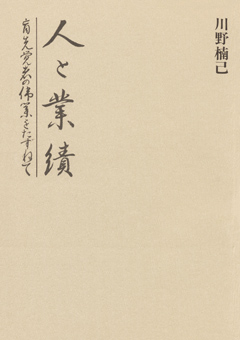 川野楠己
人と業績
盲先覚者の偉業をたずねて